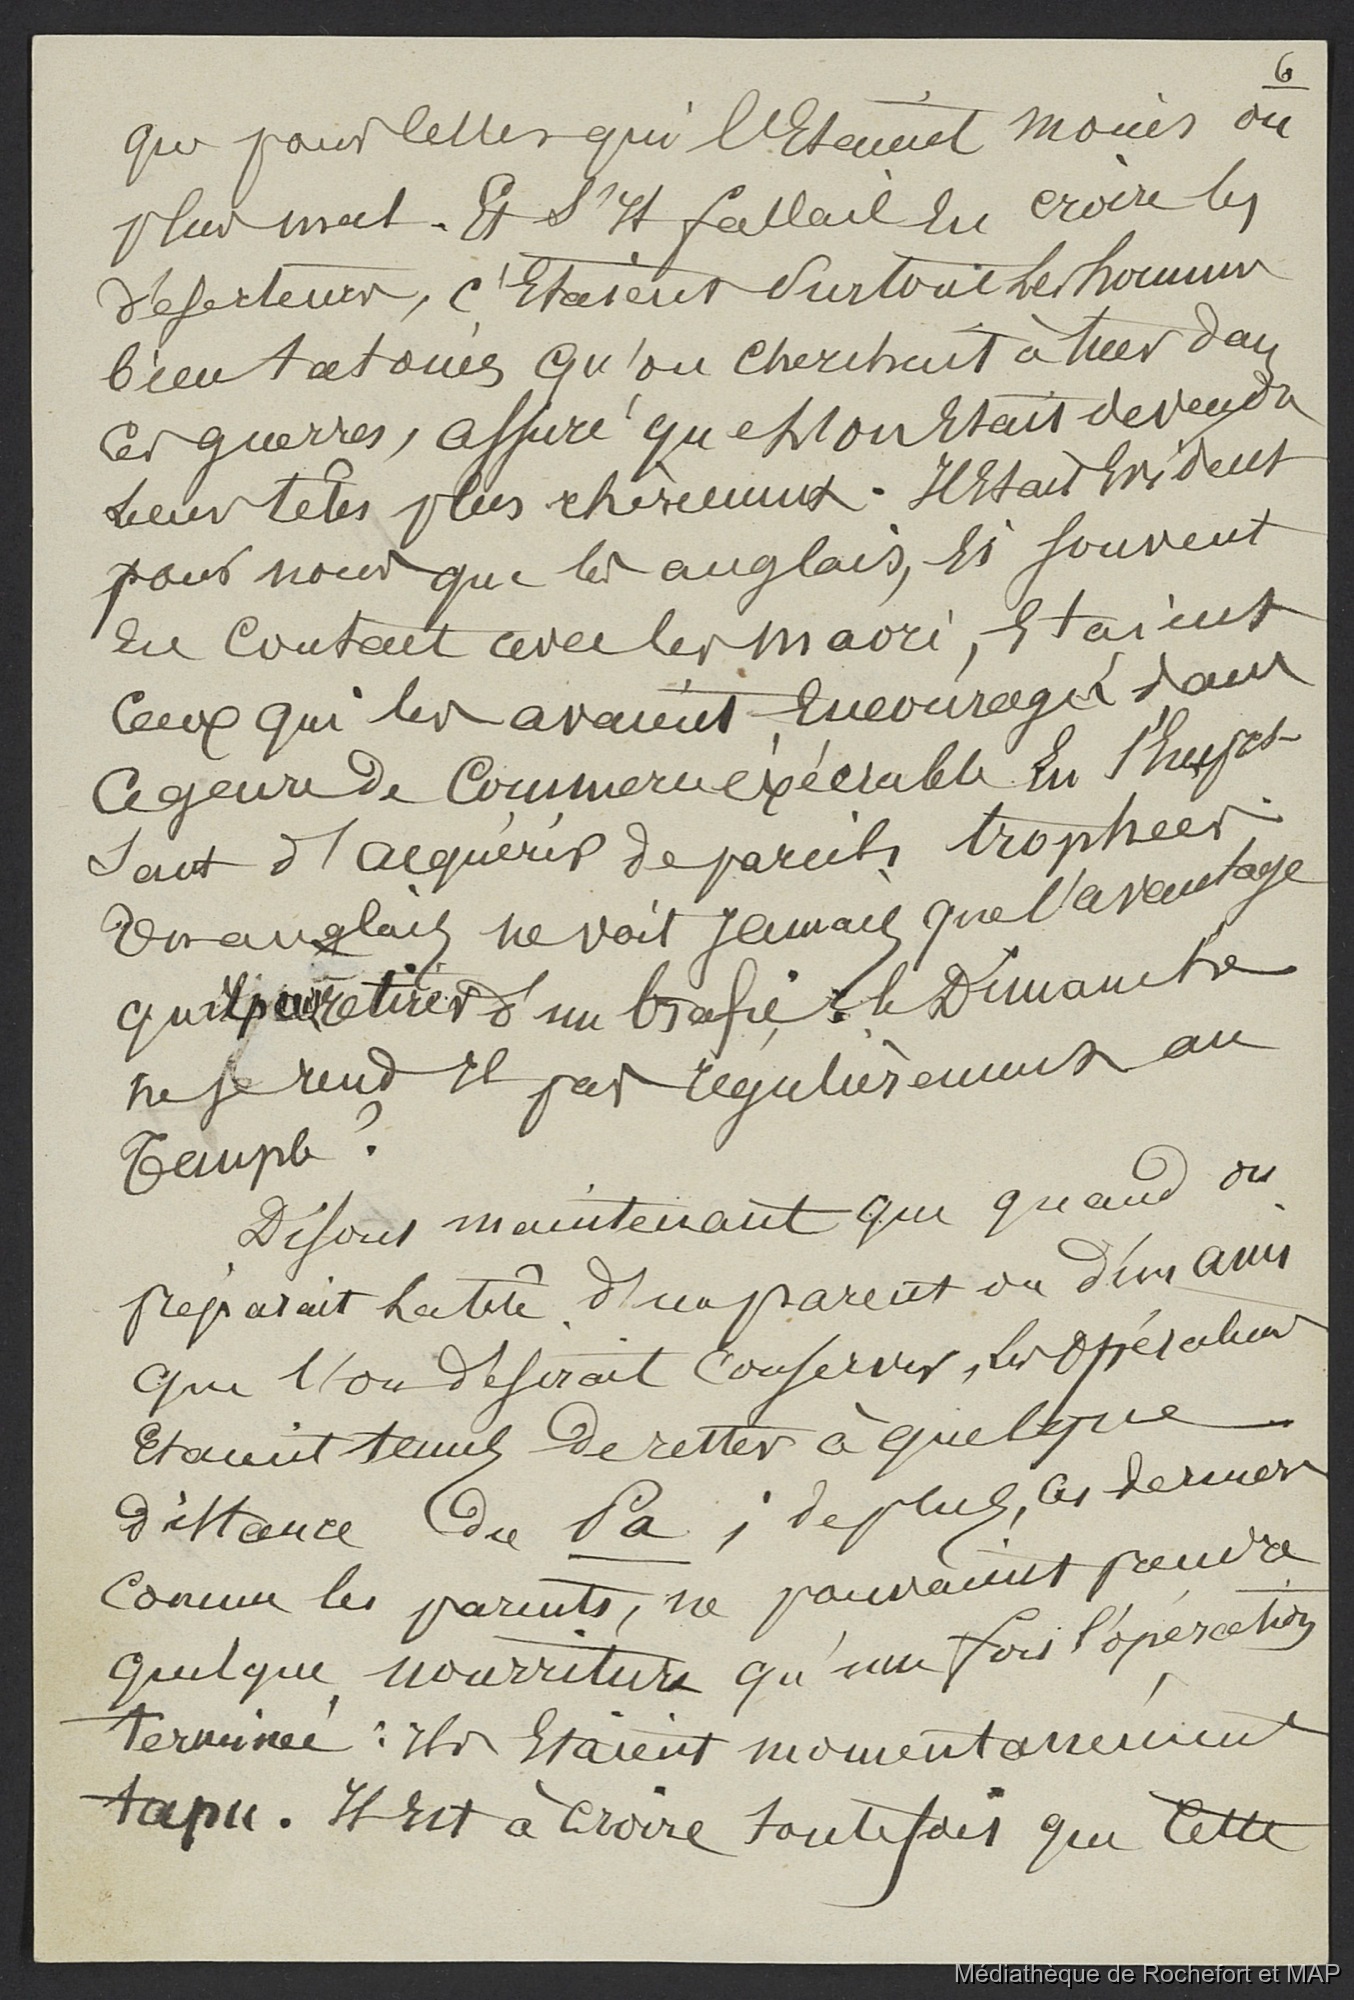 6
que pour celles qui l'Etaient moins ou
plus mal. Et s'Il fallait En croire les
déserteurs, c'Etaient surtout les hommes
bien tatoués qu'on cherchait à tuer dans
ces guerres, assuré que l'on Etait de vendre
leurs têtes plus chèrement. Il Etait Evident
pour nous que les anglais, si souvent
En contact avec les maori, Etaient
ceux qui les avaient Encouragés dans
ce genre de commerce éxécrable En s'Empres
sant d'acquérir de pareils trophees.
Un anglais ne voit jamais que l'avantage
qu'il peut retirer d'un trafic : le Dimanche
ne se rend Il pas régulièrement au
Temple ?
Disons maintenant que quand on
préparait la tête d'un parent ou d'un ami
que l'on désirait conserver, les opérateurs
Etaient tenus de rester à quelque
distance du Pa ; de plus, ces derniers
comme les parents, ne pouvaient prendre
quelque nourriture qu'une fois l'opération
terminée : Ils Etaient momentanément
tapu. Il Est à croire toutefois que cette
Médiathèque de Rochefort et MAP